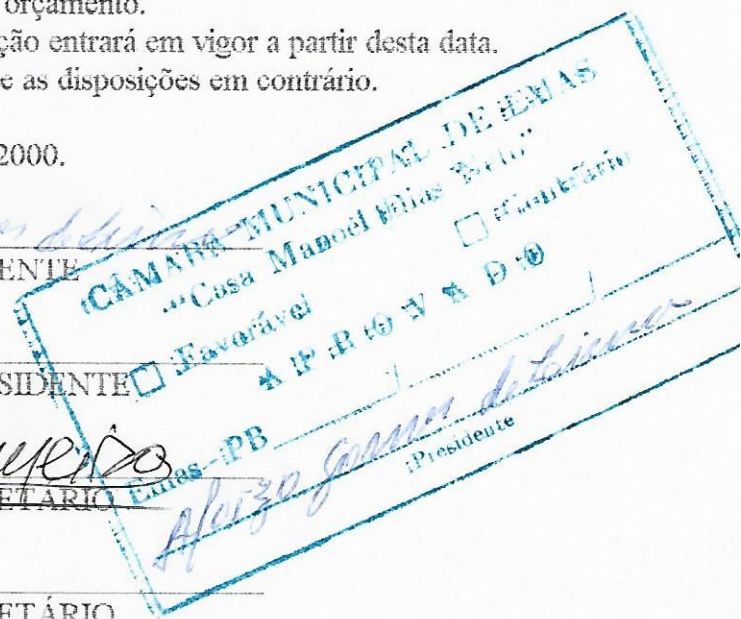 orçamento.
ção entrará em vigor a partir desta data.
e as disposições em contrário.
2000.
ENTE
SIDENTE
ETÁRIO
ETÁRIO
CÂMARA MUNICIPAL DE EMAS
"Casa Manoel Elias Neto"
☐ Favorável ☐ Contrário
APROVADO
Emas-PB / /
Afoizo Gomes de Lucena
Presidente